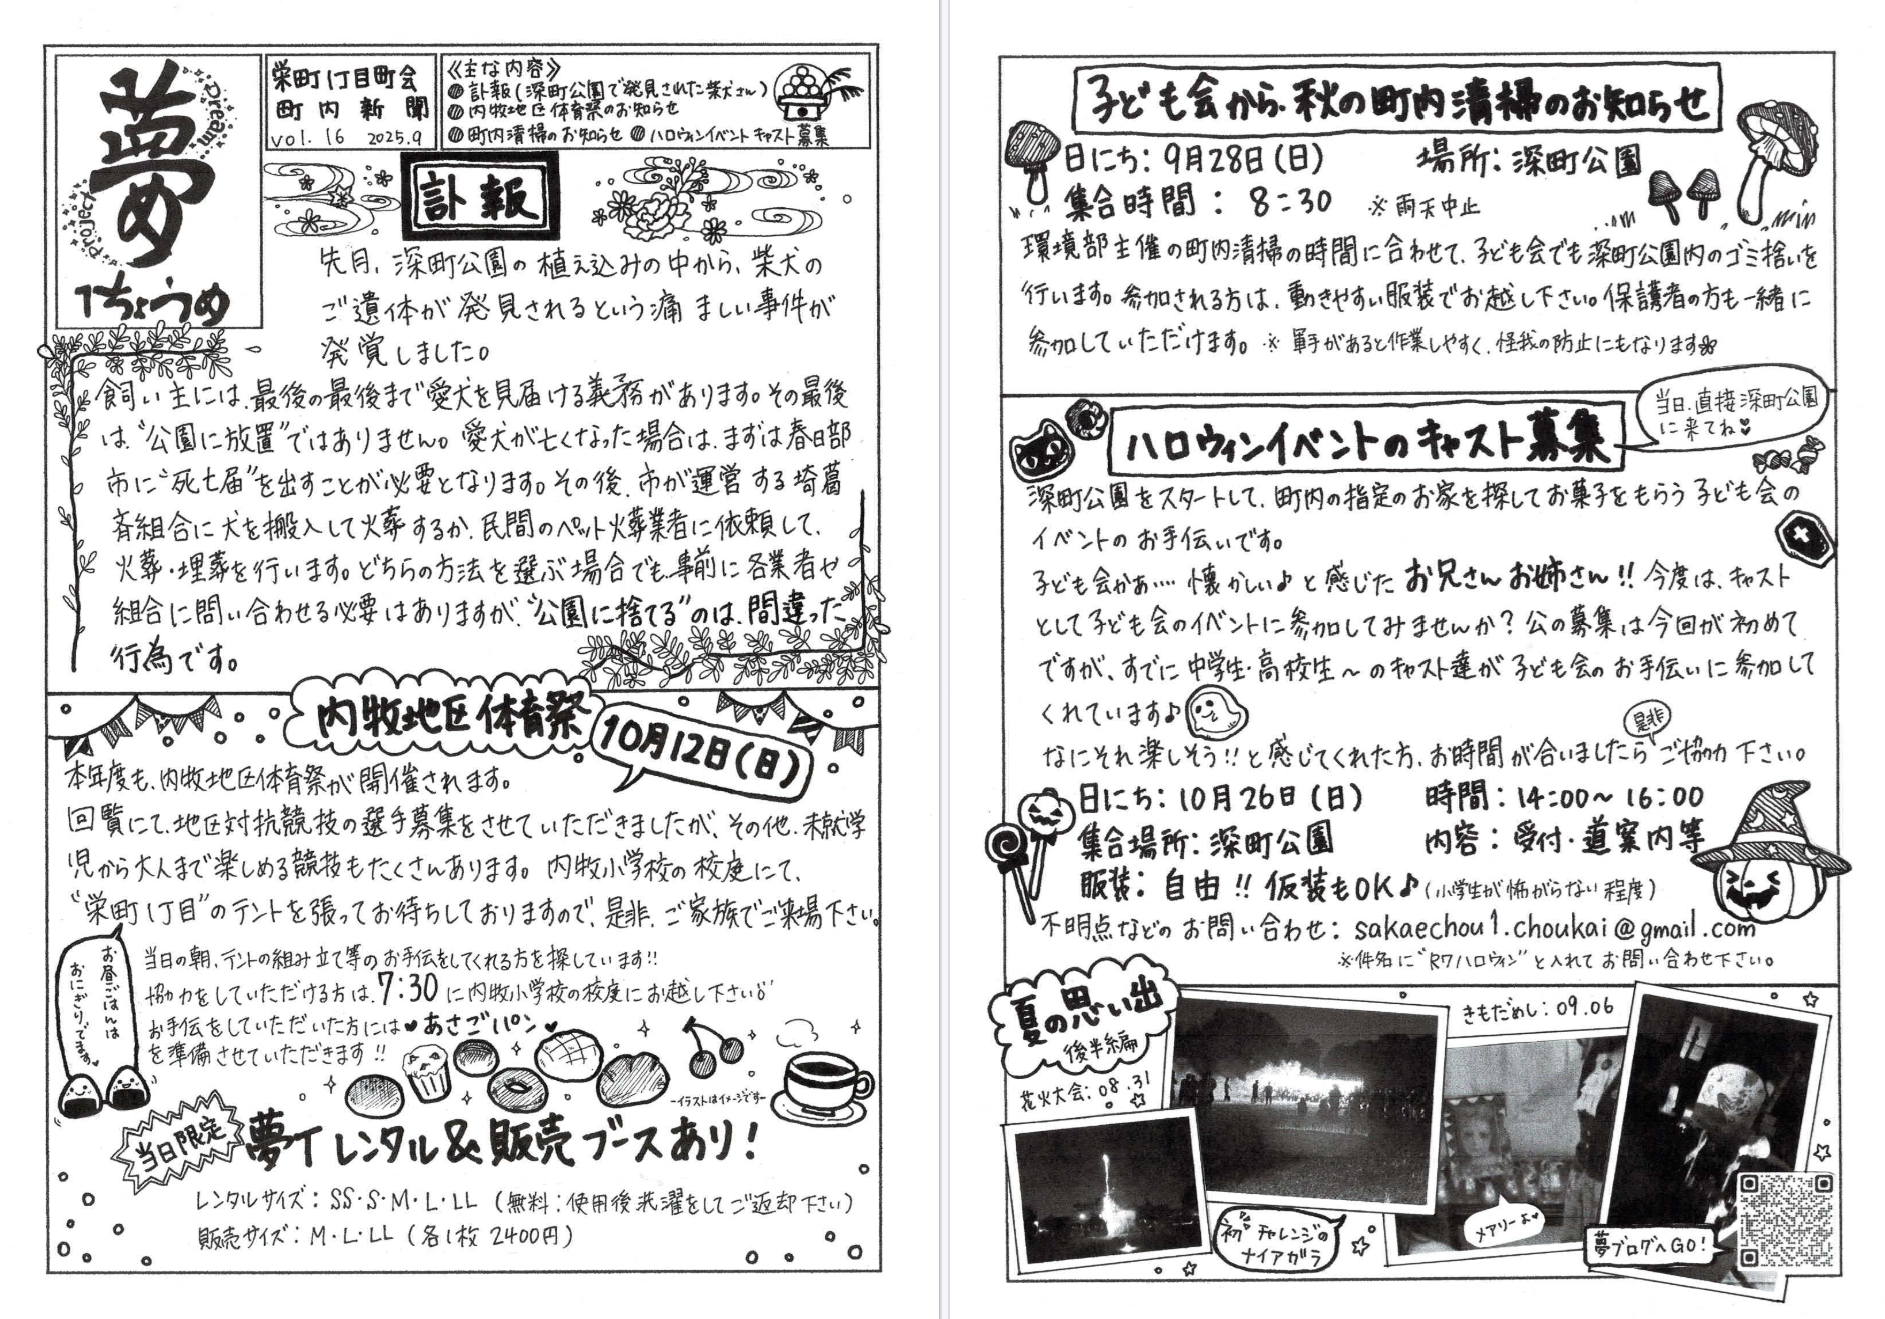 夢
め
1ちょうめ
Dream...
Paropro
栄町1丁目町会
町内新聞
vol. 16 2025.9
《主な内容》
訃報(深町公園で発見された柴犬さん)
内牧地区体育祭のお知らせ
町内清掃のお知らせ ハロウィンイベントキャスト募集
訃報
先月、深町公園の植え込みの中から、柴犬の
ご遺体が発見されるという痛ましい事件が
発覚しました。
飼い主には、最後の最後まで愛犬を見届ける義務があります。その最後
は、“公園に放置”ではありません。愛犬が亡くなった場合は、まずは春日部
市に“死亡届”を出すことが必要となります。その後、市が運営する埼葛
斉組合に犬を搬入して火葬するか、民間のペット火葬業者に依頼して、
火葬・埋葬を行います。どちらの方法を選ぶ場合でも、事前に各業者や
組合に問い合わせる必要はありますが、“公園に捨てる”のは、間違った
行為です。
内牧地区体育祭
10月12日(日)
本年度も、内牧地区体育祭が開催されます。
回覧にて、地区対抗競技の選手募集をさせていただきましたが、その他、未就学
児から大人まで楽しめる競技もたくさんあります。内牧小学校の校庭にて、
“栄町1丁目”のテントを張ってお待ちしておりますので、是非、ご家族でご来場下さい。
お昼ごはんは
おにぎりでます♥
当日の朝、テントの組み立て等のお手伝をしてくれる方を探しています!!
協力をしていただける方は、7:30に内牧小学校の校庭にお越し下さい
お手伝をしていただいた方には♥あさごパン♥
を準備させていただきます!!
-イラストはイメージです-
当日限定
夢Tレンタル&販売ブースあり!
レンタルサイズ: SS・S・M・L・LL (無料:使用後洗濯をしてご返却下さい)
販売サイズ: M・L・LL (各1枚 2400円)
子ども会から、秋の町内清掃のお知らせ
日にち: 9月28日(日) 場所: 深町公園
集合時間: 8:30 ※雨天中止
環境部主催の町内清掃の時間に合わせて、子ども会でも深町公園内のゴミ捨いを
行います。参加される方は、動きやすい服装でお越し下さい。保護者の方も一緒に
参加していただけます。※軍手があると作業しやすく、怪我の防止にもなります
当日、直接深町公園
に来てね♥
ハロウィンイベントのキャスト募集
深町公園をスタートして、町内の指定のお家を探してお菓子をもらう子ども会の
イベントのお手伝いです。
子ども会かぁ…、懐かしい♪と感じたお兄さんお姉さん!!今度は、キャスト
として子ども会のイベントに参加してみませんか?公の募集は今回が初めて
ですが、すでに中学生・高校生〜のキャスト達が子ども会のお手伝いに参加して
くれています♪
なにそれ楽しそう!!と感じてくれた方、お時間が合いましたら是非ご協力下さい。
日にち: 10月26日(日) 時間: 14:00〜16:00
集合場所: 深町公園 内容: 受付・道案内等
服装: 自由!!仮装もOK♪(小学生が怖がらない程度)
不明点などのお問い合わせ: sakaechou1.choukai@gmail.com
※件名に“R7ハロウィン”と入れてお問い合わせ下さい。
夏の思い出
後半編
花火大会: 08.31
きもだめし: 09.06
初チャレンジの
ナイアガラ
メアリーよ♥
夢ブログへGO!